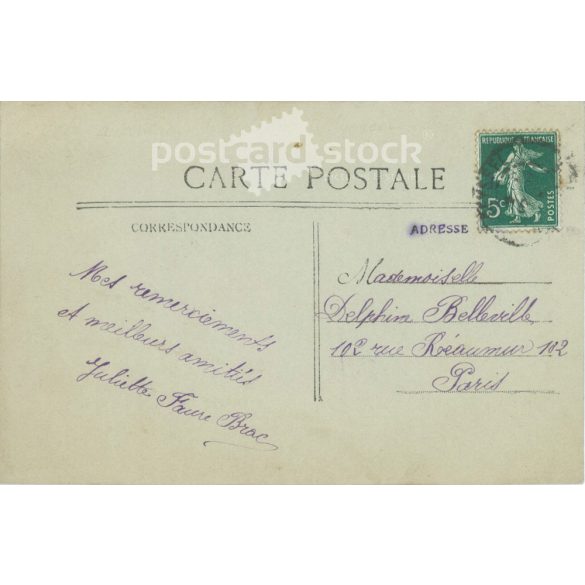 postcard stock®
CARTE POSTALE
REPUBLIQUE FRANÇAISE
5c
POSTES
CORRESPONDANCE
ADRESSE
Mes remerciements
et meilleurs amitiés
Juliette Faure Brac
Mademoiselle
Delphine Belleville
102 rue Reaumur 102
Paris